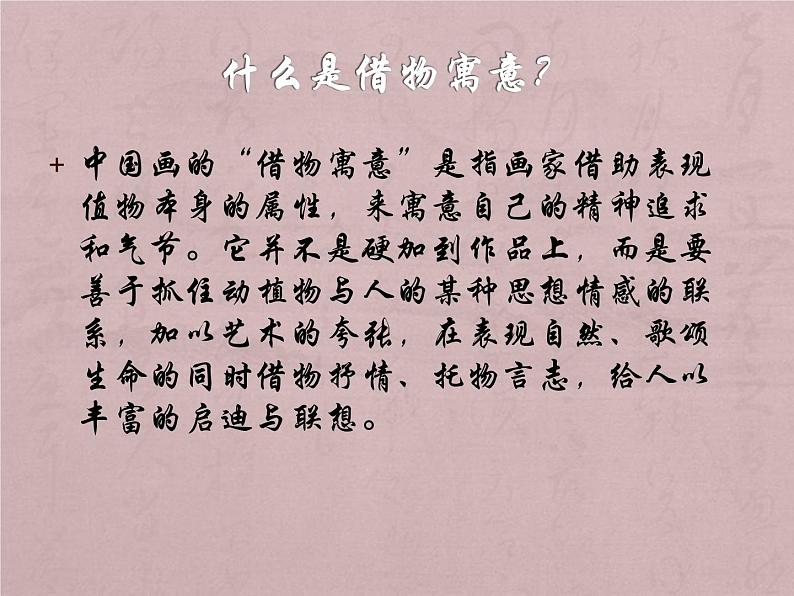 什么是借物寓意?
+ 中国画的“借物寓意”是指画家借助表现
值物本身的属性，来寓意自己的精神追求
和气节。它并不是硬加到作品上，而是要
善于抓住动植物与人的某种思想情感的联
系，加以艺术的夸张，在表现自然、歌颂
生命的同时借物抒情、托物言志，给人以
丰富的启迪与联想。